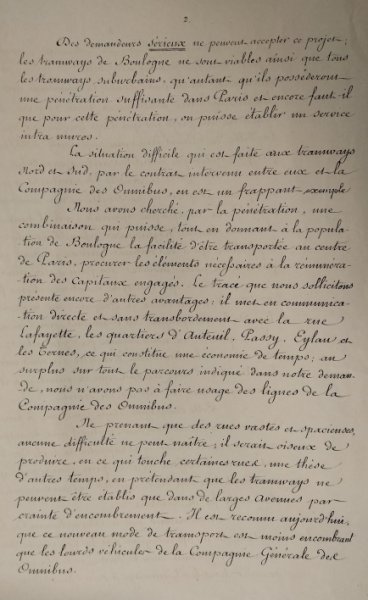 2.
Des demandeurs sérieux ne peuvent accepter ce projet;
les tramways de Boulogne ne sont viables ainsi que tous
les tramways suburbains, qu'autant qu'ils possèderont
une pénétration suffisante dans Paris et encore faut il
que pour cette pénétration, on puisse établir un service
intra muros.
La situation difficile qui est faite aux tramways
Nord et Sud, par le contrat intervenu entre eux et la
Compagnie des Omnibus, en est un frappant exemple
Nous avons cherché, par la pénétration, une
combinaison qui puisse, tout en donnant à la popula-
tion de Boulogne la facilité d'être transportée au centre
de Paris, procurer les éléments nécessaires à la rémunéra-
tion des Capitaux engagés. Le tracé que nous sollicitons
présente encore d'autres avantages; il met en communica-
tion directe et sans transbordement avec la rue
Lafayette, les quartiers d'Auteuil, Passy, Eylau et
les Ternes, ce qui constitue une économie de temps; au
surplus sur tout le parcours indiqué dans notre deman-
de, nous n'avons pas à faire usage des lignes de la
Compagnie des Omnibus.
Ne prenant que des rues vastes et spacieuses,
aucune difficulté ne peut naître; il serait oiseux de
produire, en ce qui touche certaines rues, une thèse
d'autres temps, en prétendant que les tramways ne
peuvent être établis que dans de larges Avenues par
crainte d'encombrement. Il est reconnu aujourd'hui,
que ce nouveau mode de transport est moins encombrant
que les lourds véhicules de la Compagnie Générale des
Omnibus.